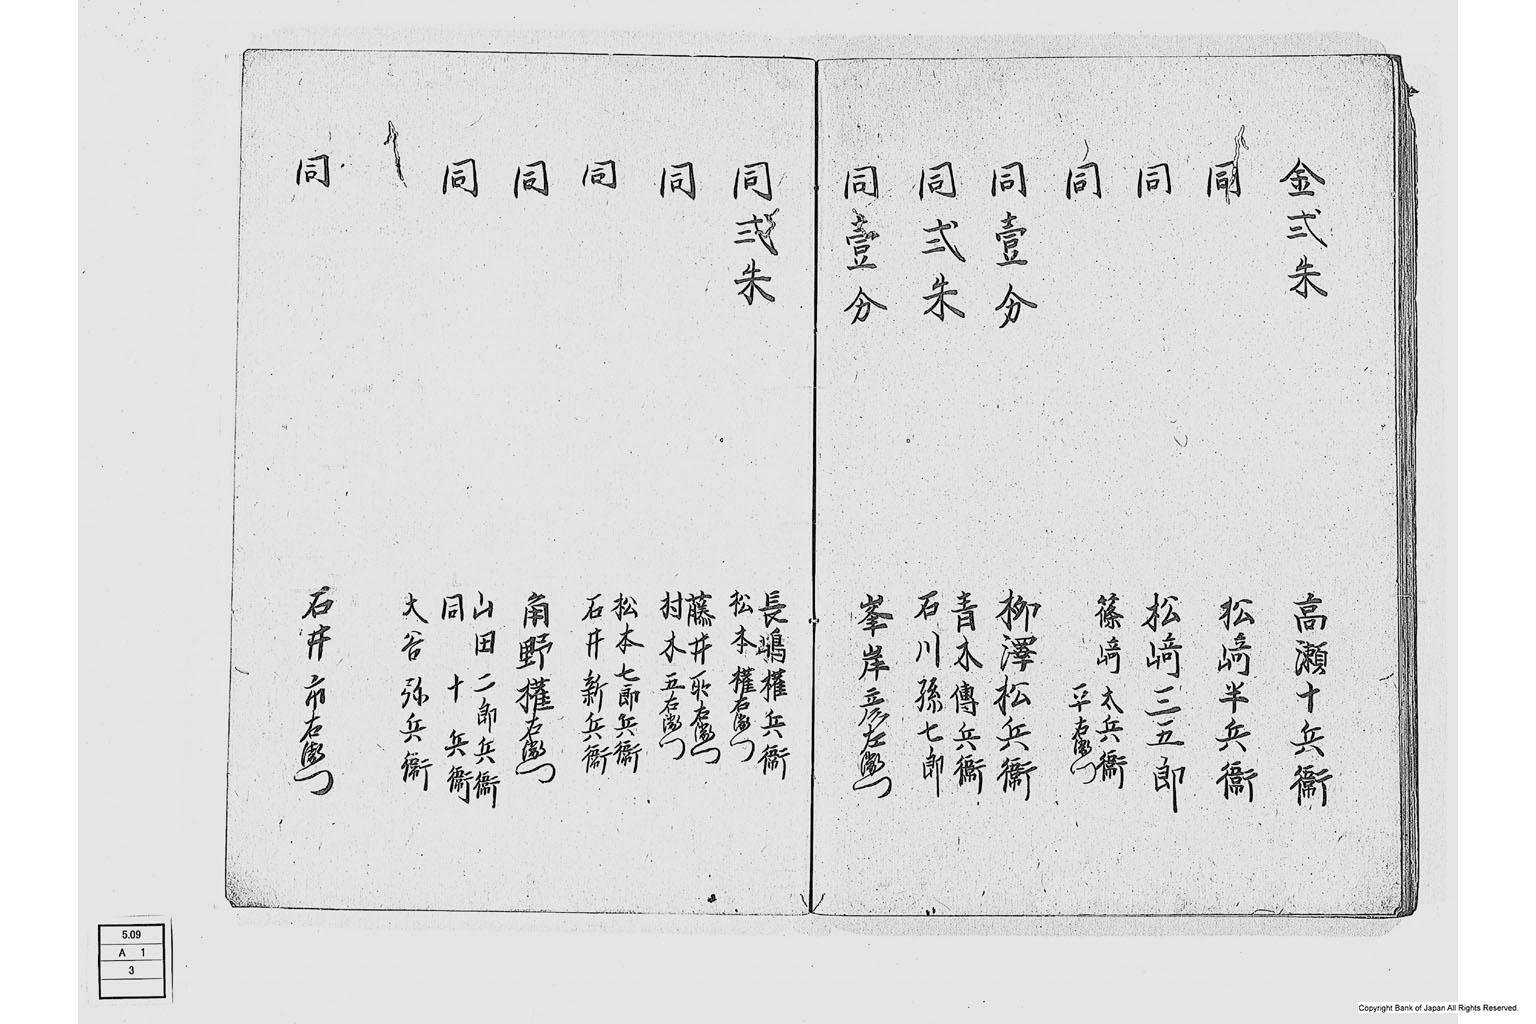 金弐朱 高瀬十兵衞
同 松﨑半兵衞
同 松﨑三五郎
同 篠﨑太兵衞
平右衞門
同壹分 柳澤松兵衞
同弐朱 青木傳兵衞
石川孫七郎
同壹分 峯岸彦左衞門
同弐朱 長嶋権兵衞
松本権右衞門
同 藤井 右衞門
村木五右衞門
同 松本七郎兵衞
石井新兵衞
同 角野権右衞門
同 山田二郎兵衞
同 十兵衞
大谷弥兵衞
同 石井市右衞門
5.09
A 1
3
Copyright Bank of Japan All Rights Reserved.